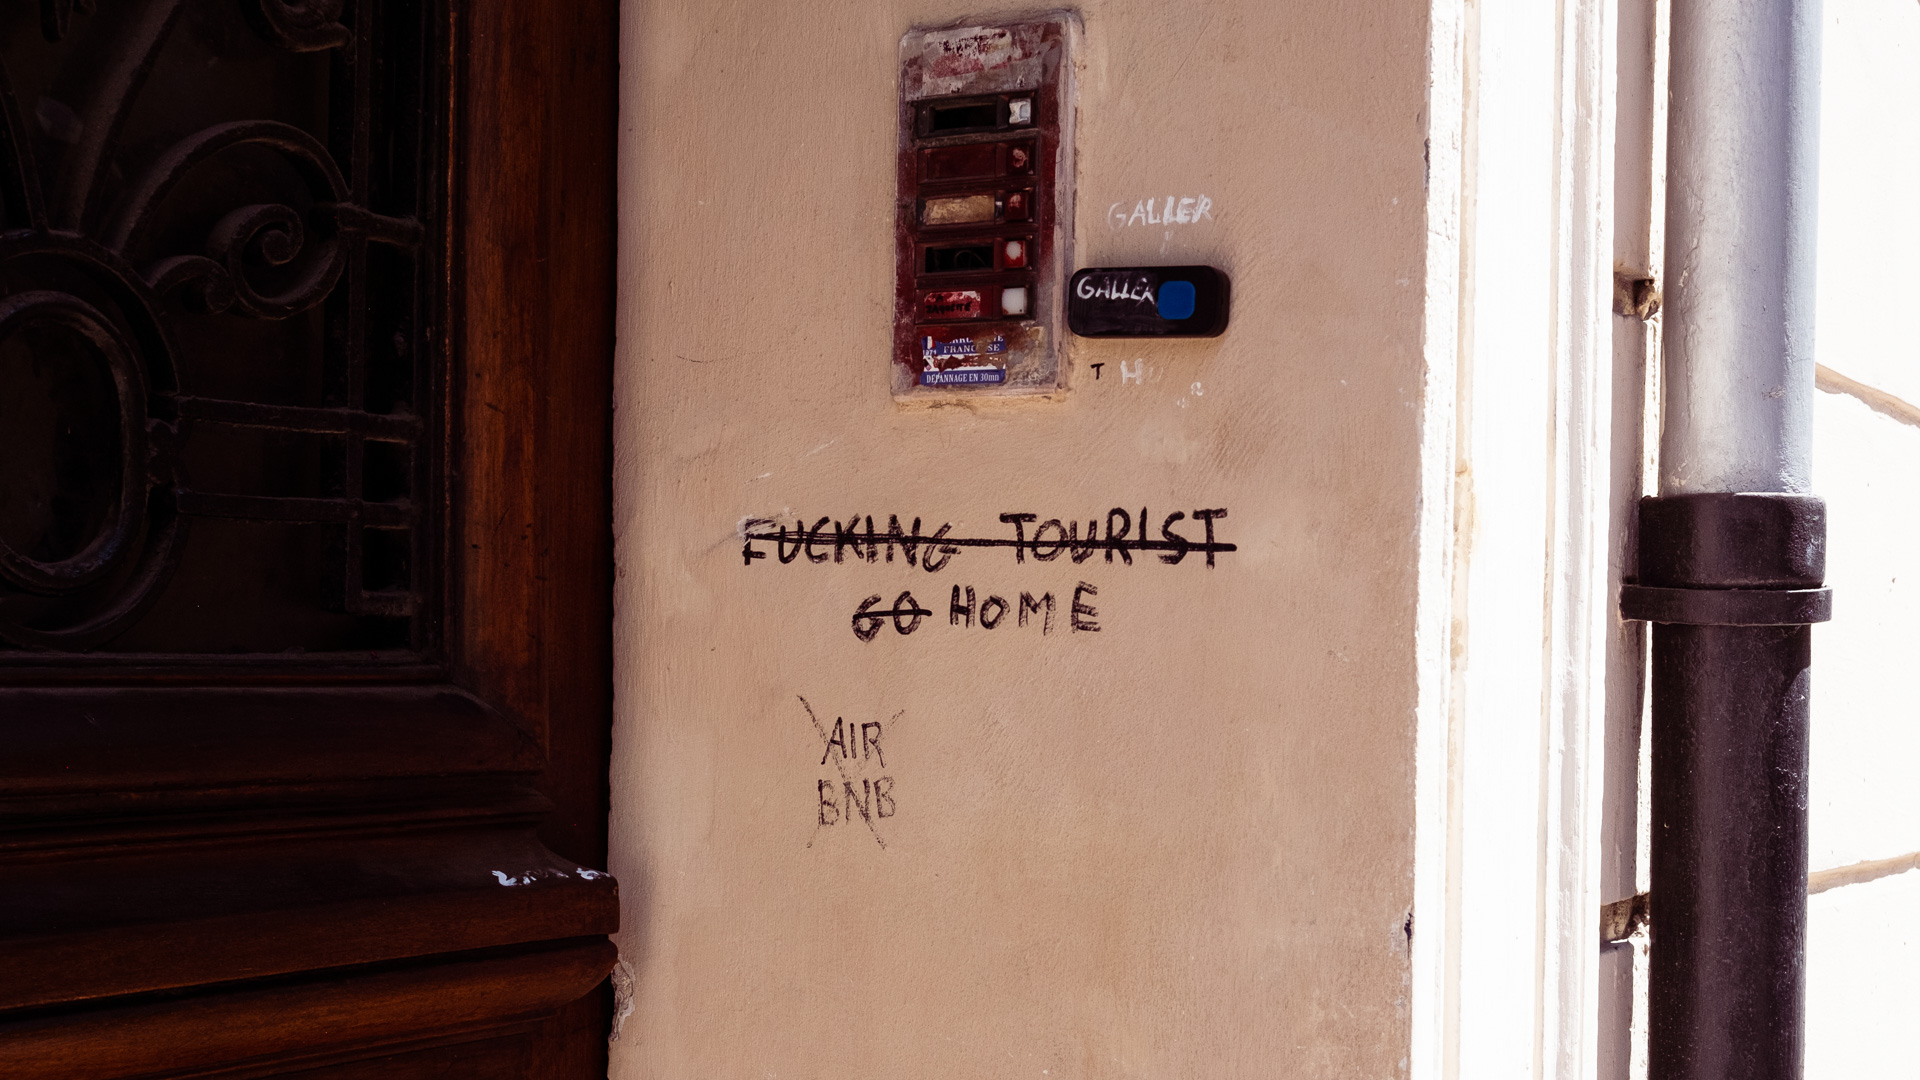 GALLER
GALLER
FRANÇAISE
DÉPANNAGE EN 30mn
T H
FUCKING TOURIST
GO HOME
AIR
BNB